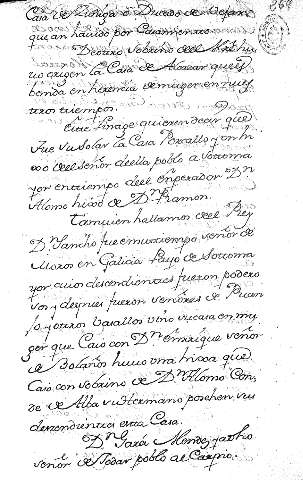 Casa de Zuñiga o Ducado de Bejar
que an hacido por Casamiento
De otro Sobrino del M
tuvo origen la Casa de Alcazar que es
en herencia de muger en nues
tros tiempos.
Este Linage quieren decir que
fue su solar la Casa Portallo y un hi
xo del señor de ella poblo a Sotoma
yor en tiempo del enperador Dⁿ
Alonso hixo de Dⁿ Ramon.
Tamvien hallamos del Rey
Dⁿ Sancho fue en su tiempo señor de
Moxos en Galicia Payo de Sotoma
yor cuios descendientes fueron podero
sos, y despues fueron señores de
y otros basallos vino su casa en mu
ger que Caso con Dⁿ Enrrique señor
de Bolaños huvo una hixa que
Caso con sobrino de Dⁿ Alonso Con
de de Alba su Hermano posehen sus
descendientes esta Casa.
Dⁿ Garzi Mendez
señor de Todar poblo al Carpio.